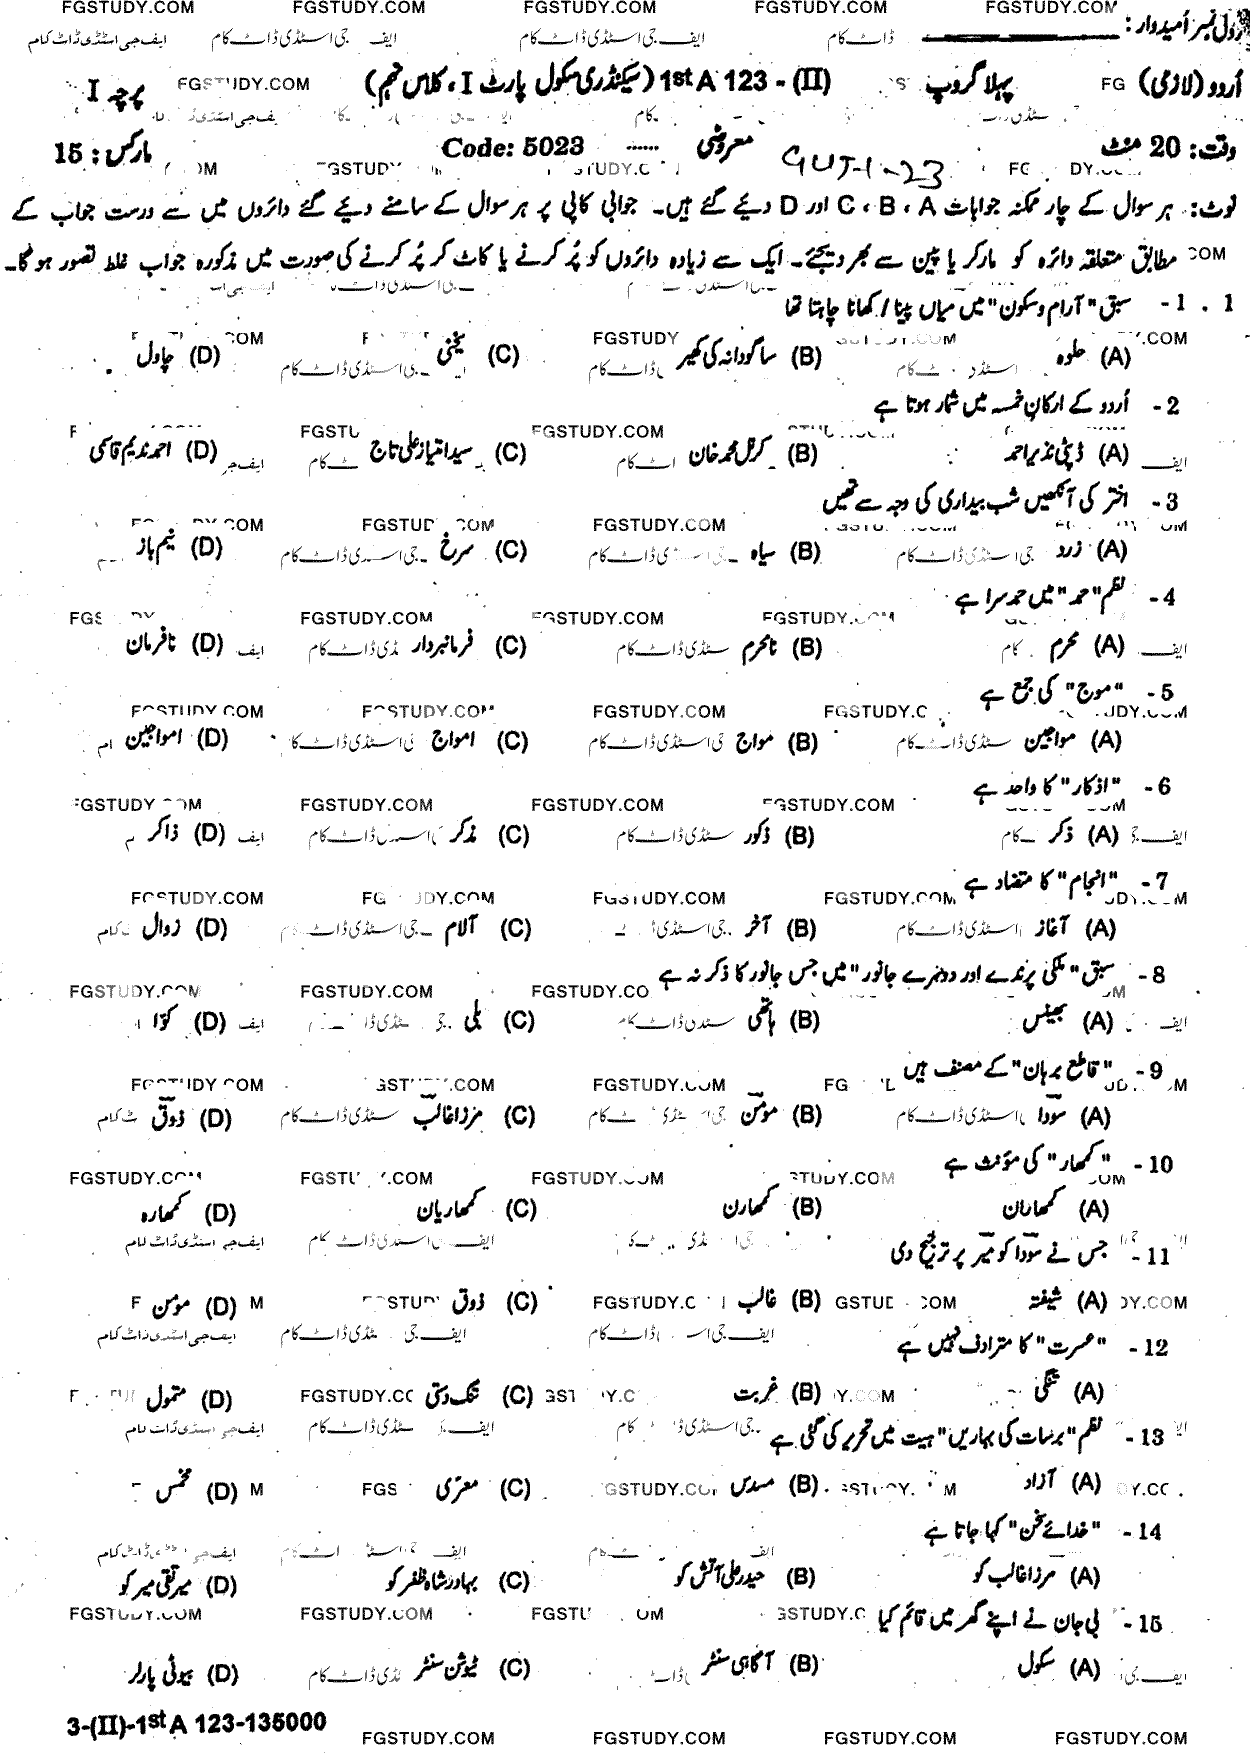 FGSTUDY.COM FGSTUDY.COM FGSTUDY.COM FGSTUDY.COM FGSTUDY.COM
رول نمبر اُمیدوار:
اُردو (لازمی) پہلا گروپ 1st A 123 - (II) (سیکنڈری سکول پارٹ I ، کلاس نہم) پرچہ I
وقت: 20 منٹ معروضی ...... Code: 5023 مارکس: 15
GUJ-1-23
نوٹ: ہر سوال کے چار ممکنہ جوابات A ، B ، C اور D دیئے گئے ہیں۔ جوابی کاپی پر ہر سوال کے سامنے دیئے گئے دائروں میں سے درست جواب کے
مطابق متعلقہ دائرہ کو مارکر یا پین سے بھر دیجئے۔ ایک سے زیادہ دائروں کو پُر کرنے یا کاٹ کر پُر کرنے کی صورت میں مذکورہ جواب غلط تصور ہو گا۔
1 . 1 - سبق "آرام و سکون" میں میاں پینا / کھانا چاہتا تھا
(A) حلوہ (B) ساگودانہ کی کھیر (C) یخنی (D) چاول
2 - اُردو کے ارکانِ خمسہ میں شمار ہوتا ہے
(A) ڈپٹی نذیر احمد (B) کرنل محمد خان (C) سید امتیاز علی تاج (D) احمد ندیم قاسمی
3 - اختر کی آنکھیں شب بیداری کی وجہ سے تھیں
(A) زرد (B) سیاہ (C) سرخ (D) نیم باز
4 - نظم "حمد" میں حمد سرا ہے
(A) محرم (B) نامحرم (C) فرمانبردار (D) نافرمان
5 - "موج" کی جمع ہے
(A) مواجین (B) مواج (C) امواج (D) امواجین
6 - "اذکار" کا واحد ہے
(A) ذکر (B) ذکور (C) مذکر (D) ذاکر
7 - "انجام" کا متضاد ہے
(A) آغاز (B) آخر (C) آلام (D) زوال
8 - سبق "ملکی پرندے اور دوسرے جانور" میں جس جانور کا ذکر نہ ہے
(A) بھینس (B) ہاتھی (C) بلی (D) کوّا
9 - "قاطع برہان" کے مصنف ہیں
(A) سودا (B) مومن (C) مرزا غالب (D) ذوق
10 - "کمھار" کی مؤنث ہے
(A) کمھاران (B) کمھارن (C) کمھاریان (D) کمھارہ
11 - جس نے سودا کو میر پر ترجیح دی
(A) شیفتہ (B) غالب (C) ذوق (D) مومن
12 - "عسرت" کا مترادف نہیں ہے
(A) تنگی (B) غربت (C) تنگ دستی (D) متمول
13 - نظم "برسات کی بہاریں" ہیت میں تحریر کی گئی ہے
(A) آزاد (B) مسدس (C) معرّی (D) مخمس
14 - "خدائے سخن" کہا جاتا ہے
(A) مرزا غالب کو (B) حیدر علی آتش کو (C) بہادر شاہ ظفر کو (D) میر تقی میر کو
15 - بی جان نے اپنے گھر میں قائم کیا
(A) سکول (B) آگاہی سنٹر (C) ٹیوشن سنٹر (D) بیوٹی پارلر
3-(II)-1st A 123-135000
FGSTUDY.COM FGSTUDY.COM FGSTUDY.COM FGSTUDY.COM